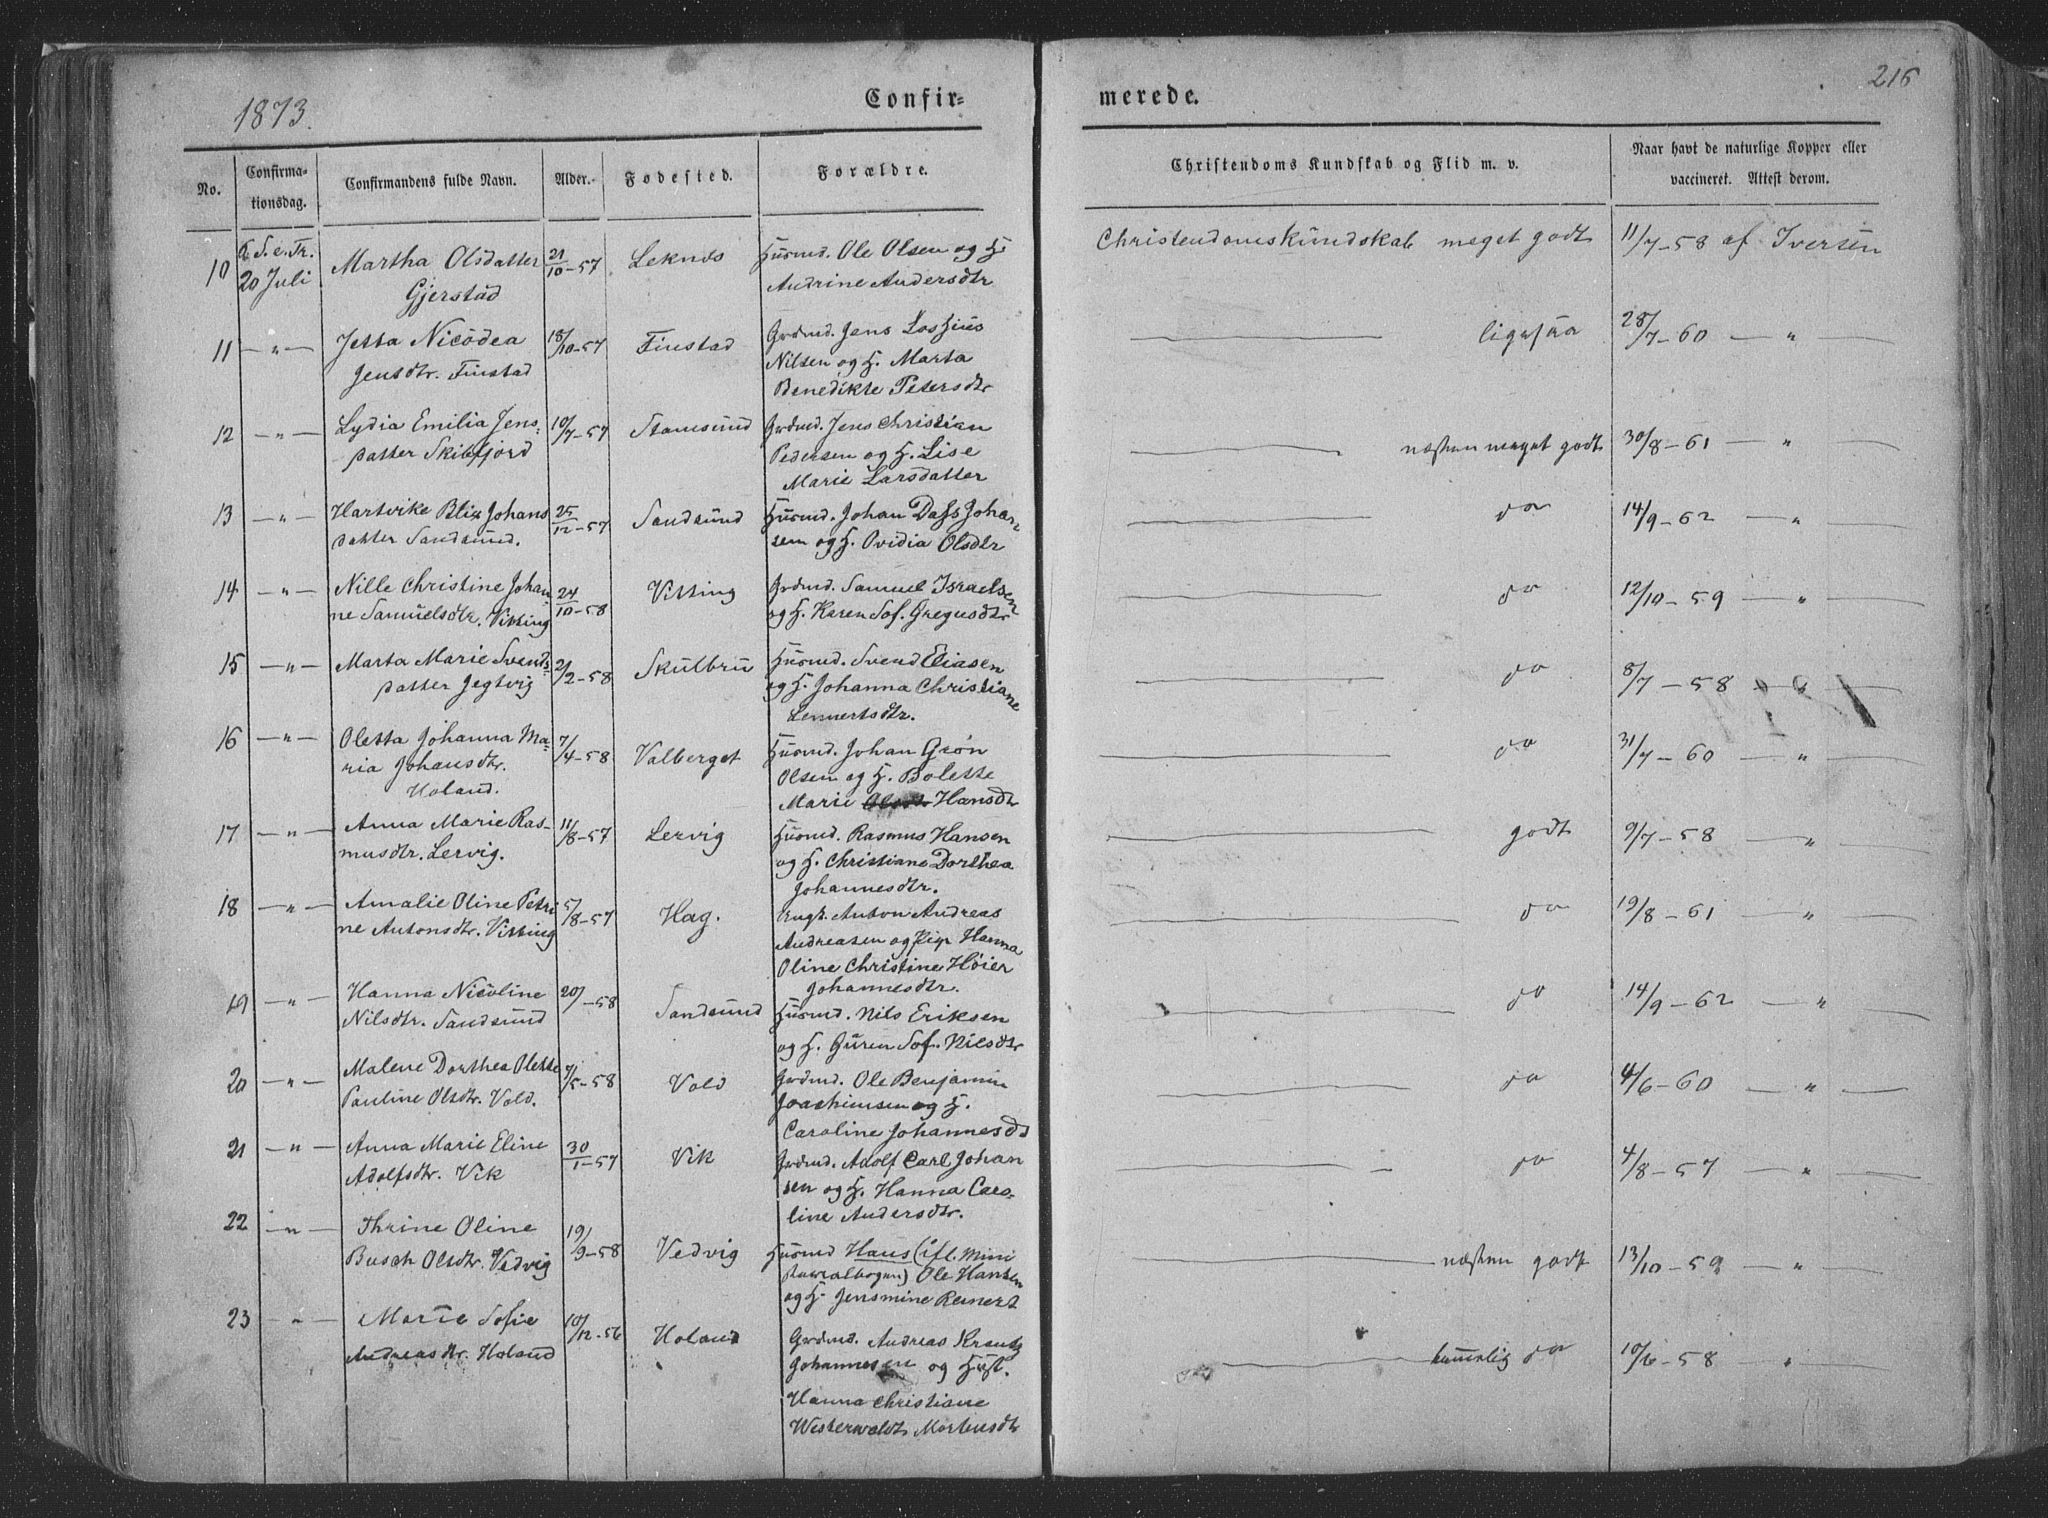 1873.
Confir-
merede.
216
No.
Confirma-
tionsdag.
Confirmandens fulde Navn.
Alder.
Fødested.
Forældre.
Christendoms Kundskab og Flid m. v.
Naar havt de naturlige Kopper eller
vaccineret. Attest derom.
10 6 S. e. Tr. 20 Juli
Martha Olsdatter
Gjerstad
21/10-57
Leknes
Husmd. Ole Olsen og H.
Andrine Andersdtr
Christendomskundskab meget godt
11/7-58 af Iversen
11 — " —
Jetta Nicodea
Jensdtr. Finstad
18/10-57
Finstad
Grdmd. Jens Losius
Nilsen og H. Marta
Benedikte Petersdtr
ligesaa
28/7-60 — " —
12 — " —
Lydia Emilia Jens-
datter Skibfjord
10/7-57
Stamsund
Grdmd. Jens Christian
Pedersen og H. Lise
Marie Larsdatter
næsten meget godt
30/8-61 — " —
13 — " —
Hartvike Blix Johans
datter Sandsund.
25/12-57
Sandsund
Husmd. Johan Dass Johan
sen og H. Ovidia Olsdtr
do
14/9-62 — " —
14 — " —
Nille Christine Johan
ne Samuelsdtr. Vitting
24/10-58
Vitting
Grdmd. Samuel Israelsen
og H. Karen Sof. Gregusdtr
do
12/10-59 — " —
15 — " —
Marta Marie Svends-
datter Jegtvig
21/2-58
Skulbru
Husmd. Svend Eliasen
og H. Johanna Christiane
Lennertsdtr.
do
8/7-58 — " —
16 — " —
Oletta Johanna Ma-
ria Johansdtr.
Holand.
7/4-58
Valberget
Husmd. Johan Grøn
Olsen og H. Bolette
Marie Olsdtr Hansdtr
do
31/7-60 — " —
17 — " —
Anna Marie Ras-
musdtr. Lervig.
11/8-57
Lervig
Husmd. Rasmus Hansen
og H. Christiane Dorthea
Johannesdtr.
godt
9/7-58 "
18 — " —
Amalie Oline Petri
ne Antonsdtr. Vitting
5/8-57
Hag.
Ungk. Anton Andreas
Andreasen og Pige Hanna
Oline Christine Høier
Johannesdtr.
do
19/8-61 "
19 — " —
Hanna Nicoline
Nilsdtr. Sandsund
20/-58
Sandsund
Husmd. Nils Eriksen
og H. Guren Sof. Nilsdtr
do
14/9-62 — "
20 — " —
Malene Dorthea Olette
Pauline Olsdtr. Vold.
7/5-58
Vold
Grdmd. Ole Benjamin
Joachimsen og H.
Caroline Johannesdt
do
4/6-60 — " —
21 — " —
Anna Marie Eline
Adolfsdtr. Vik
30/1-57
Vik
Grdmd. Adolf Carl Johan
sen og H. Hanna Caro-
line Andersdtr.
do
4/8-57 — " —
22 — " —
Thrine Oline
Busch Olsdtr. Vedvig
19/9-58
Vedvig
Husmd Hans (ifl. Mini
sterialbogen) Ole Hansen
og H. Jensmine Reinert
næsten godt
13/10-59 — " —
23 — " —
Marie Sofie
Andreasdtr. Holand
10/12-56
Holand
Grdmd. Andreas Krantz
Johannesen og Hust.
Hanna Christiane
Westerwaldt Mortensdtr
temmelig do
10/6-58 — " —